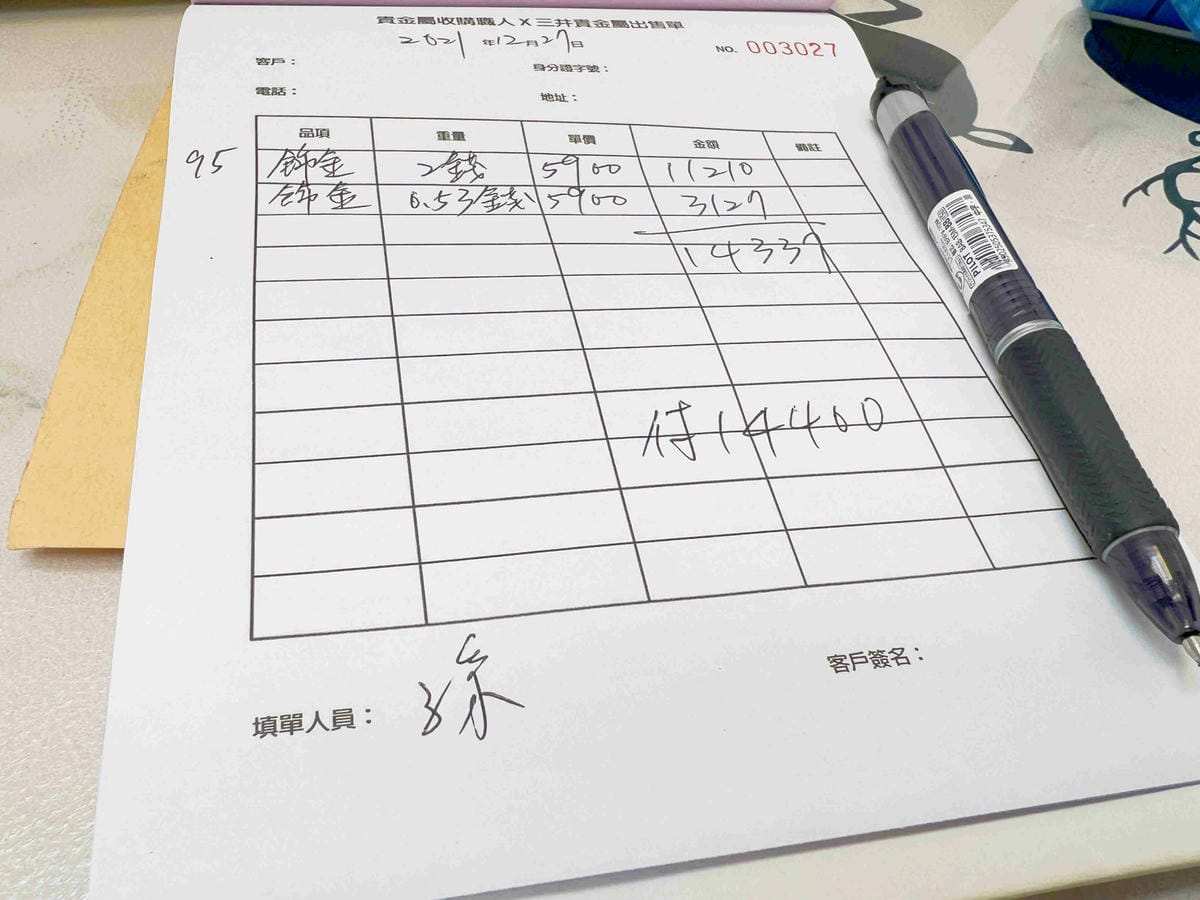 貴金屬收購職人X三井貴金屬出售單
2021年12月27日
NO. 003027
客戶：
身分證字號：
電話：
地址：
品項 重量 單價 金額 備註
95 飾金 2錢 5900 11210
飾金 0.53錢 5900 3127
14337
付14400
填單人員：
客戶簽名：
PILOT